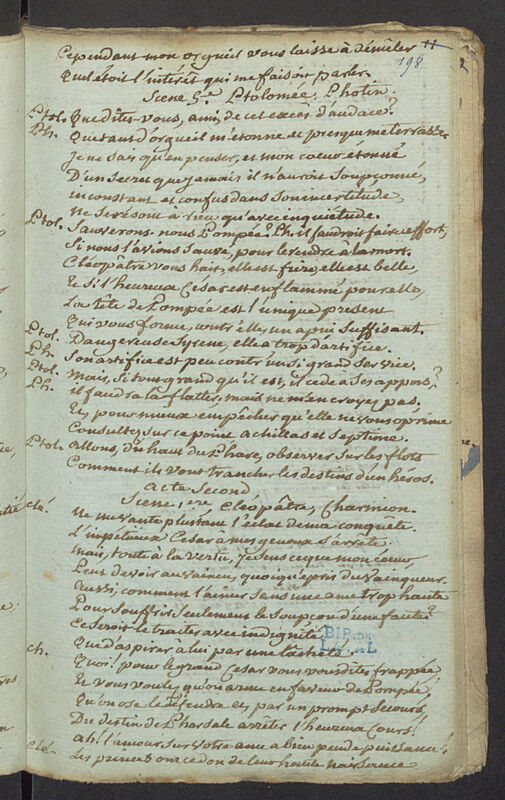 Cependant mon orgueil vous laisse à démêler 11
198
Quel étoit l'intérêt qui me faisoit parler.
Scene 5.e Ptolomée, Photin.
Ptol. Que dites-vous, ami, de cet excès d'audace?
Ph. Que tant d'orgueil m'étonne et presque me terrasse.
Je ne sais qu'en penser, et mon coeur étonné
D'un secret que jamais il n'auroit soupçonné,
inconstant et confus dans son incertitude,
Ne se résout à rien qu'avec inquiétude.
Ptol. Sauverons-nous Pompée? Ph. il faudroit faire effort,
Si nous l'avions sauvé, pour le rendre à la mort.
Cléopâtre vous hait, elle est fière, elle est belle,
Et si l'heureux Cesar est enflammé pour elle,
La tête de Pompée est l'unique présent
Qui vous forme, contr'elle, un apui suffisant.
Ptol. Dangereuse Syrene, elle a trop d'artifice.
Ph. Son artifice est peu contr'un si grand service.
Ptol. Mais, si tout grand qu'il est, il cede à ses appas?
Ph. il faudra la flatter, mais ne m'en croyez pas.
Et, pour mieux empêcher qu'elle ne vous oprime
Consultez sur ce point Achillas et Septime.
Ptol. Allons, du haut du Phare, observer sur les flots
Comment ils vont trancher les destins d'un héros.
Acte Second
Scene 1.ere Cléopâtre, Charmion.
Clé. Ne me vante plus tant l'éclat de ma conquête.
L'impétueux Cesar à mes genoux s'arrête.
Mais, toute à la vertu, je sens ce que mon coeur,
Peut devoir au vaincu, quoiqu'épris du vainqueur.
Aussi, comment l'aimer sans une ame trop haute
Pour souffrir seulement le soupçon d'une faute?
Ce seroit le traiter avec indignité
Que d'aspirer à lui par une lâcheté.
BIB. DE
LAVAL
Ch. Quoi! pour le grand Cesar vous vous dites frappée,
Et vous voulez qu'on arme en faveur de Pompée,
Qu'on ose le défendre et, par un prompt secours,
Du destin de Pharsale arrêter l'heureux cours!
Ah! l'amour sur votre ame a bien peu de puissance!
Clé. Les princes ont ce don de leur haute naissance